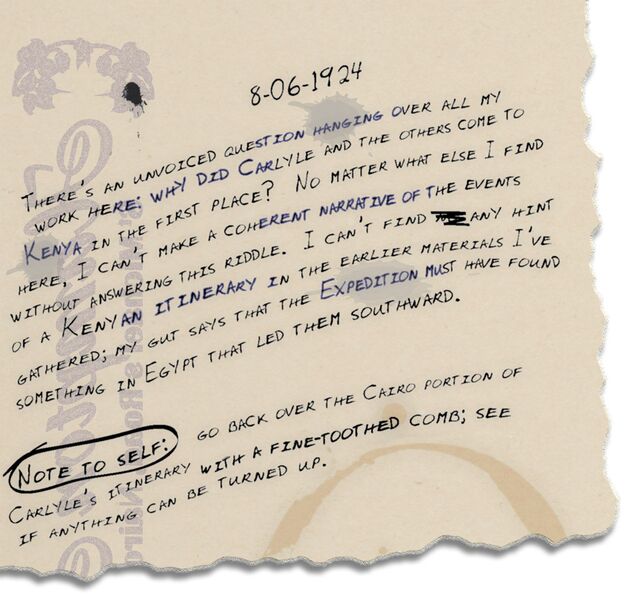 8-06-1924
There's an unvoiced question hanging over all my
work here: why did Carlyle and the others come to
Kenya in the first place? No matter what else I find
here, I can't make a coherent narrative of the events
without answering this riddle. I can't find any hint
of a Kenyan itinerary in the earlier materials I've
gathered; my gut says that the Expedition must have found
something in Egypt that led them southward.
Note to self: go back over the Cairo portion of
Carlyle's itinerary with a fine-toothed comb; see
if anything can be turned up.